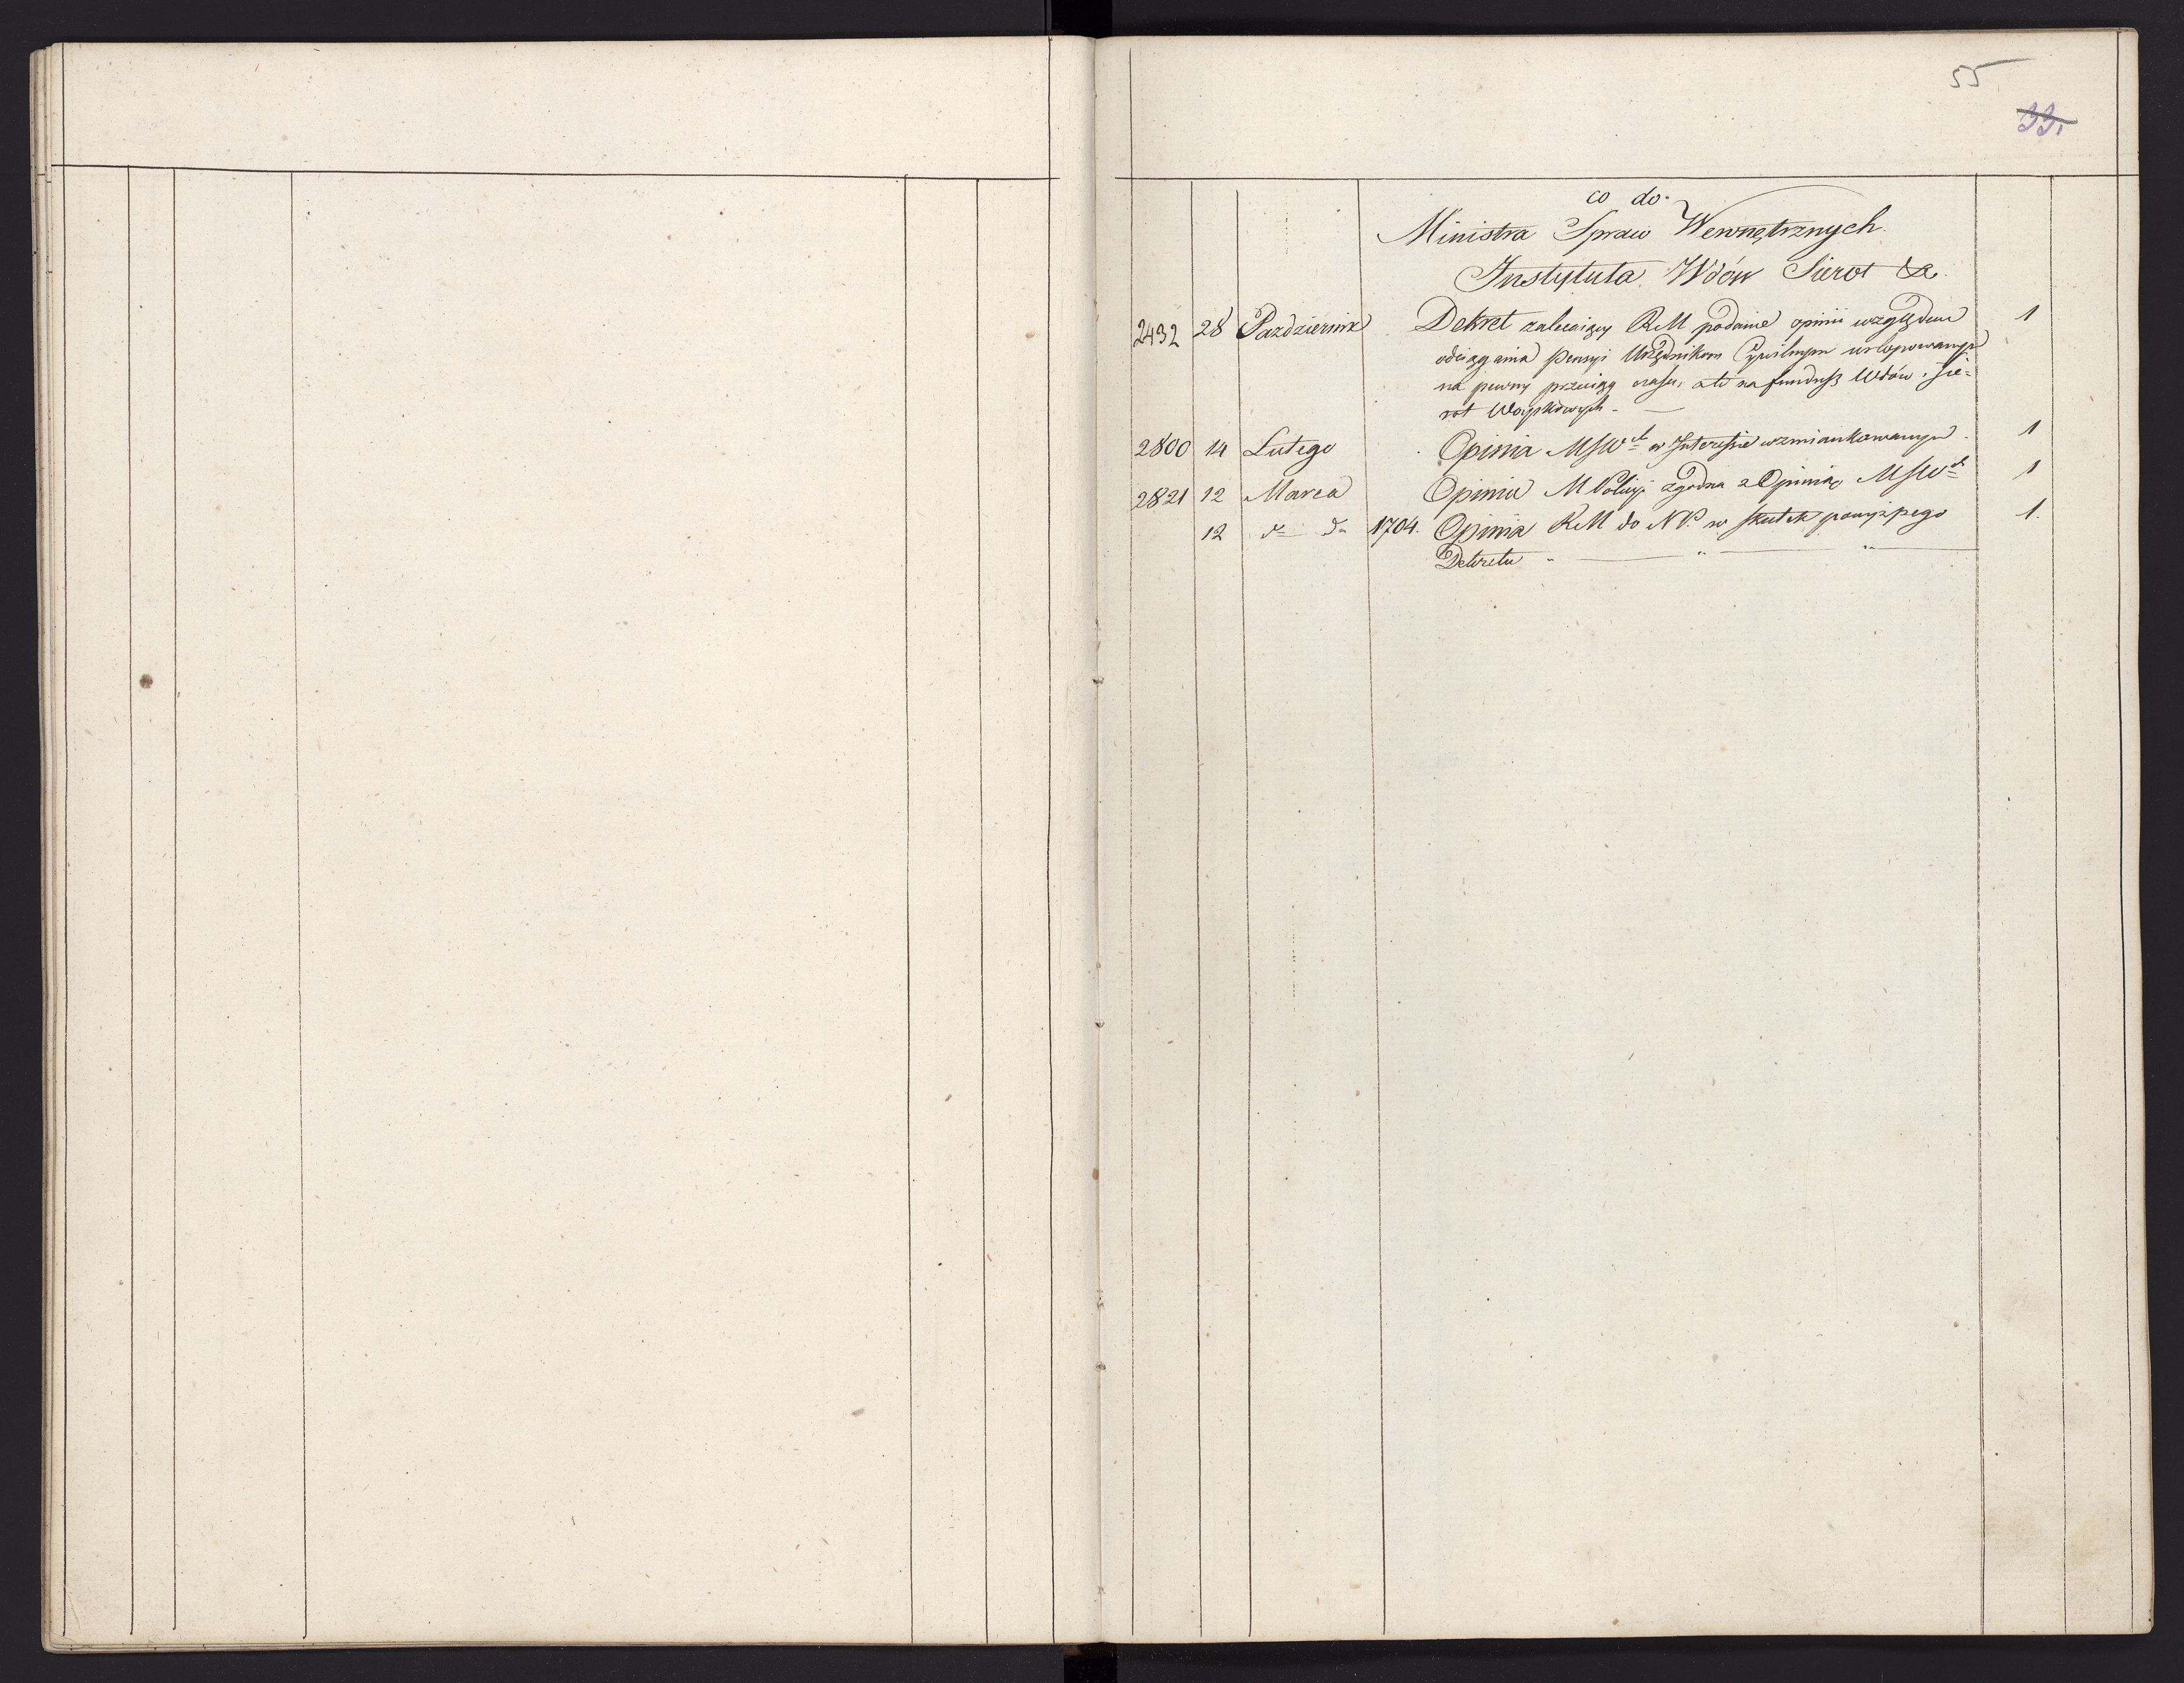 55
33.
co do
Ministra Spraw Wewnętrznych.
Instytuta Wdów Sierot &a
2432 28 Pazdziernik Dekret zalecaiący RM podanie opinii względem 1
odciągania Pensyi Urzędnikom Cywilnym urlopowanym
na pewny przeciąg czasu, ale na fundusz Wdów i sie=
rot Woyskowych -
2800 14 Lutego Opinia MSWch w Interesie wzmiankowanym. 1
2821 12 Marca Opinia MPolicyi zgodna z Opinią MSWch 1
12 do do 1704. Opinia RM do NP. w skutek powyższego 1.
Dekretu